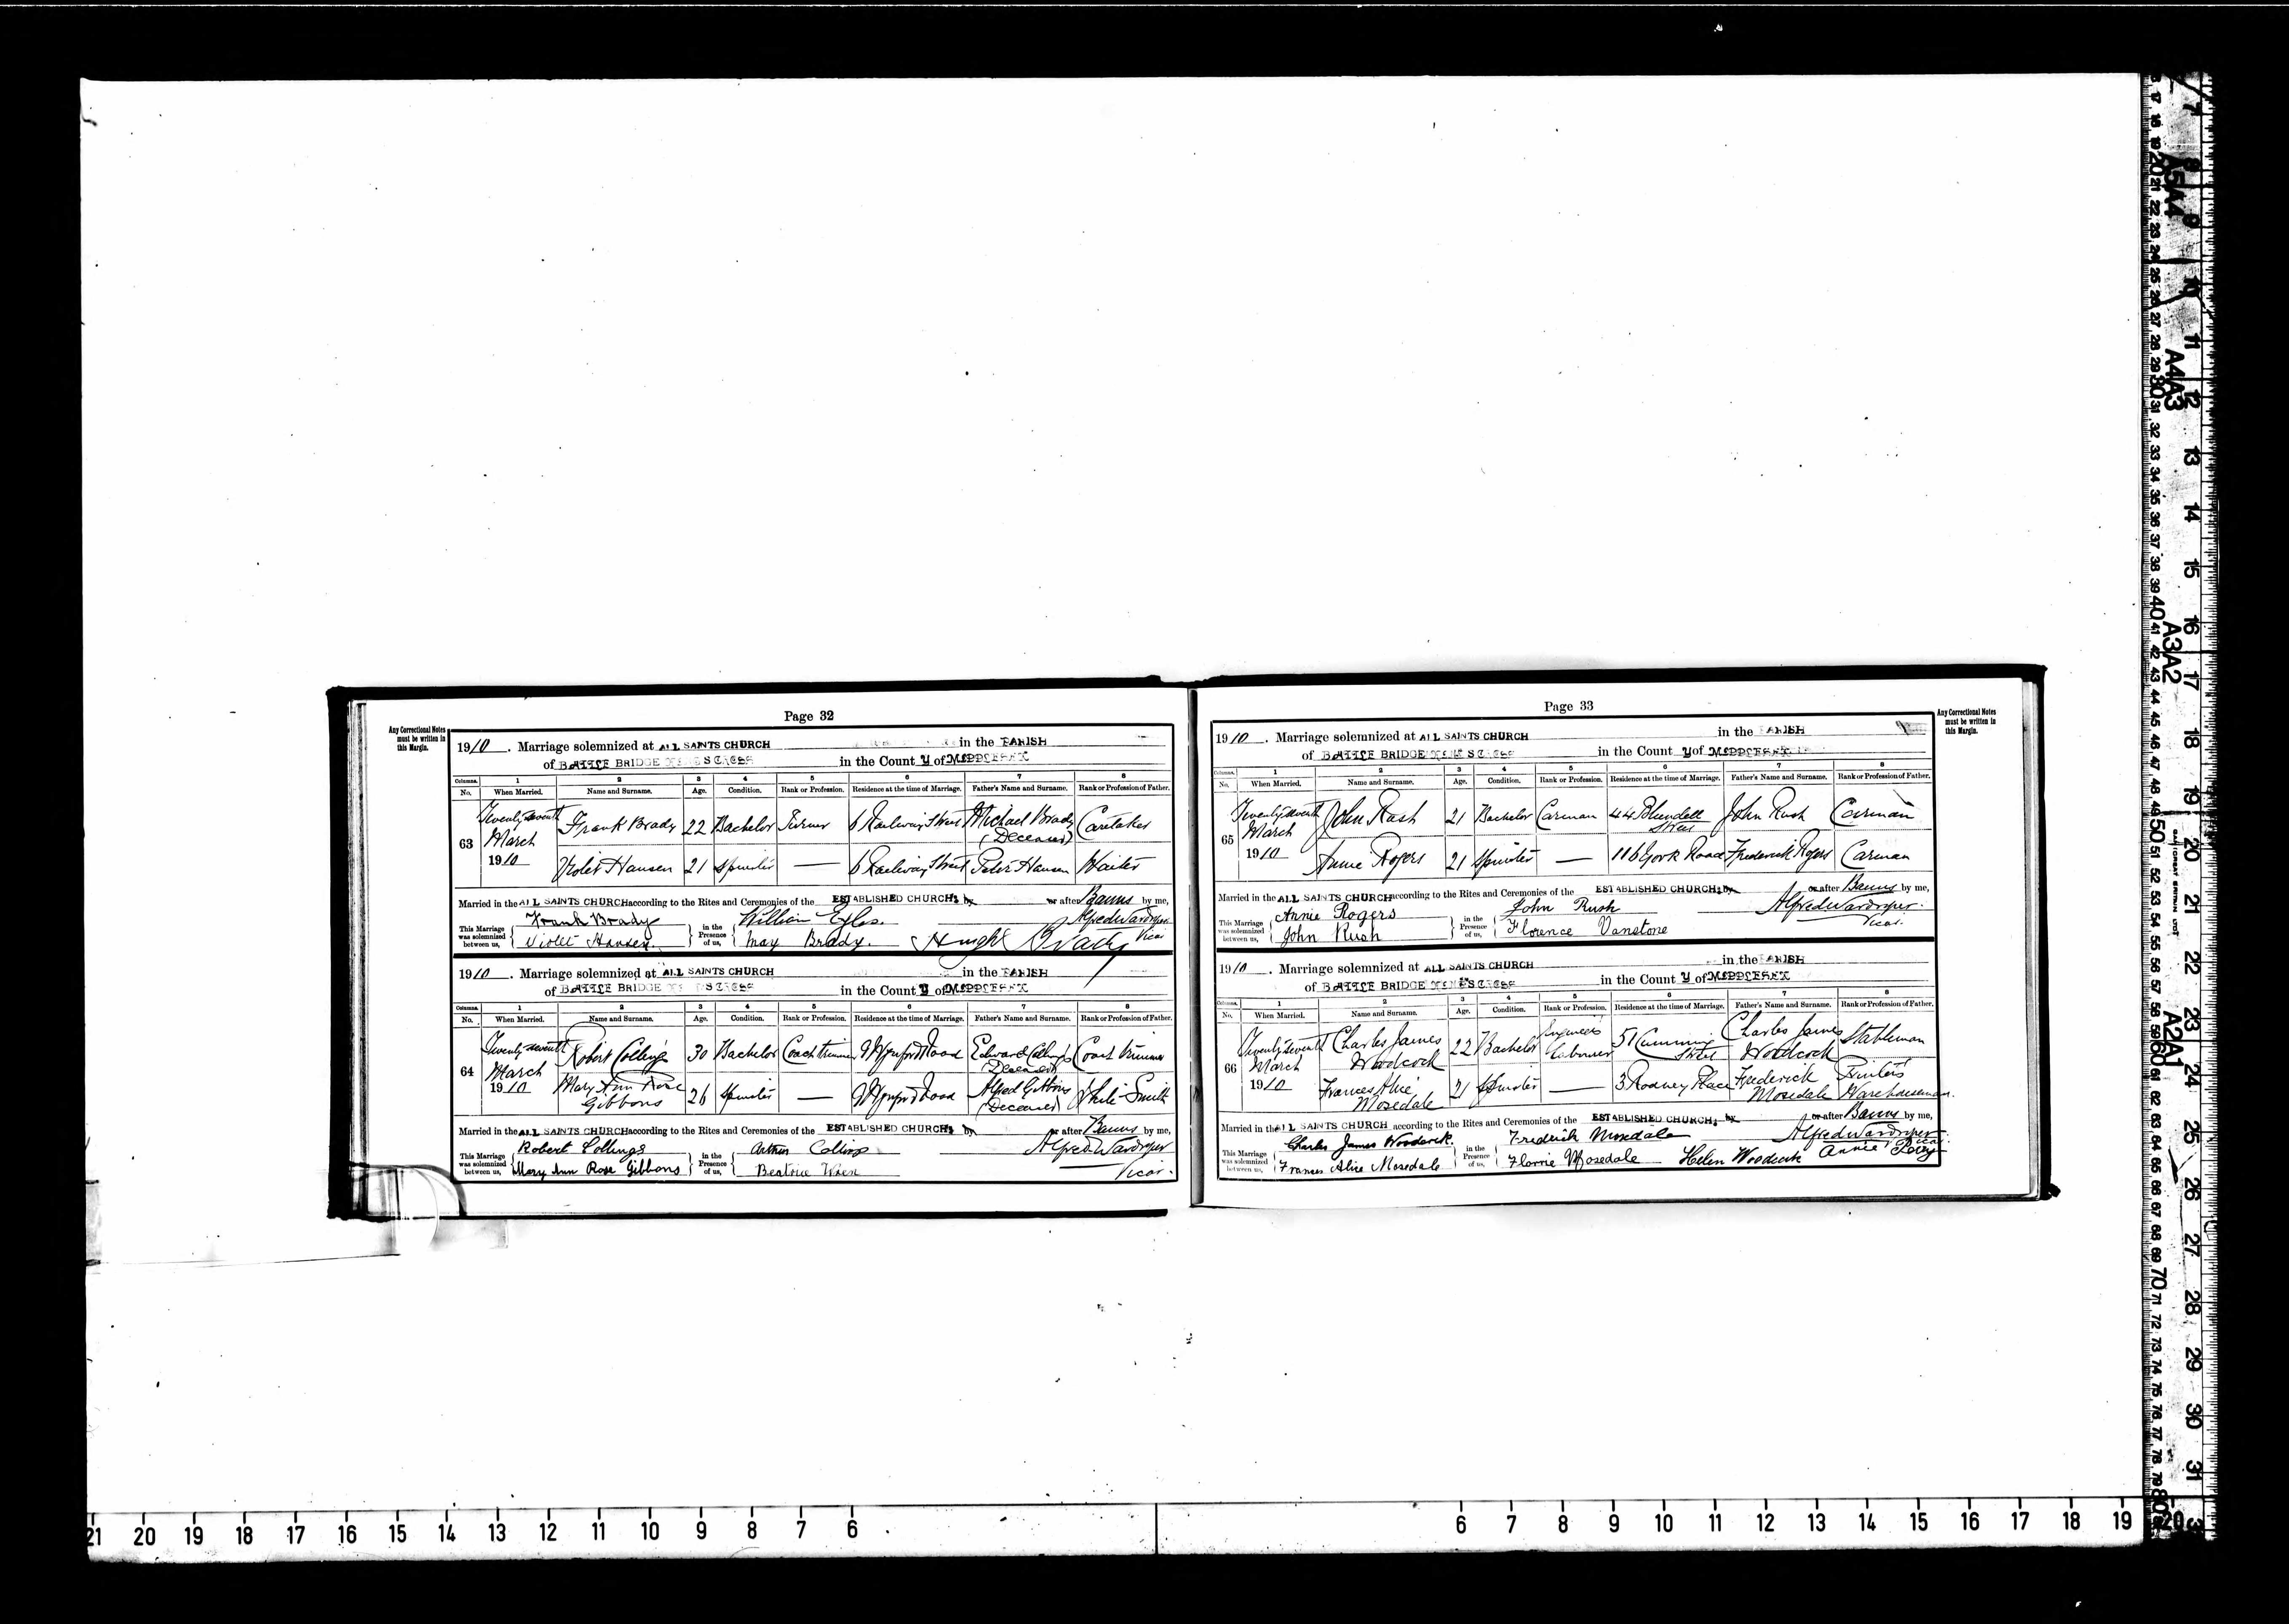 Page 32
Any Correctional Notes
must be written in
this Margin.
1910. Marriage solemnized at ALL SAINTS CHURCH in the PARISH
of BATTLE BRIDGE in the County of MIDDLESEX
Columns. 1 2 3 4 5 6 7 8
No. When Married. Name and Surname. Age. Condition. Rank or Profession. Residence at the time of Marriage. Father's Name and Surname. Rank or Profession of Father.
63 Twenty seventh March 1910 Frank Brady 22 Bachelor Turner 6 Railway Street Michael Brady (Deceased) Caretaker
Violet Hansen 21 Spinster — 6 Railway Street Peter Hansen Waiter
Married in the ALL SAINTS CHURCH according to the Rites and Ceremonies of the ESTABLISHED CHURCH, by or after Banns by me,
This Marriage was solemnized between us, Frank Brady Violet Hansen in the Presence of us, William May Brady. Hugh Brady Alfred Wardroper Vicar
1910. Marriage solemnized at ALL SAINTS CHURCH in the PARISH
of BATTLE BRIDGE in the County of MIDDLESEX
Columns. 1 2 3 4 5 6 7 8
No. When Married. Name and Surname. Age. Condition. Rank or Profession. Residence at the time of Marriage. Father's Name and Surname. Rank or Profession of Father.
64 Twenty seventh March 1910 Robert Collings 30 Bachelor Coach trimmer 9 Edward Collings Deceased Coach trimmer
Mary Ann Rose Gibbons 26 Spinster — 9 Alfred Gibbons (Deceased) Smith
Married in the ALL SAINTS CHURCH according to the Rites and Ceremonies of the ESTABLISHED CHURCH, by or after Banns by me,
This Marriage was solemnized between us, Robert Collings Mary Ann Rose Gibbons in the Presence of us, Arthur Collings Beatrice Alfred Wardroper Vicar.
Page 33
Any Correctional Notes
must be written in
this Margin.
1910. Marriage solemnized at ALL SAINTS CHURCH in the PARISH
of BATTLE BRIDGE in the County of MIDDLESEX
Columns. 1 2 3 4 5 6 7 8
No. When Married. Name and Surname. Age. Condition. Rank or Profession. Residence at the time of Marriage. Father's Name and Surname. Rank or Profession of Father.
65 Twenty seventh March 1910 John Rush 21 Bachelor Carman 44 Blundell Street John Rush Carman
Annie Rogers 21 Spinster — 116 York Road Frederick Rogers Carman
Married in the ALL SAINTS CHURCH according to the Rites and Ceremonies of the ESTABLISHED CHURCH, by or after Banns by me,
This Marriage was solemnized between us, Annie Rogers John Rush in the Presence of us, John Rush Florence Vanstone Alfred Wardroper. Vicar.
1910. Marriage solemnized at ALL SAINTS CHURCH in the PARISH
of BATTLE BRIDGE in the County of MIDDLESEX
Columns. 1 2 3 4 5 6 7 8
No. When Married. Name and Surname. Age. Condition. Rank or Profession. Residence at the time of Marriage. Father's Name and Surname. Rank or Profession of Father.
66 Twenty seventh March 1910 Charles James Woodcock 22 Bachelor Engineers Labourer 51 Cumming Street Charles James Woodcock Stableman
Frances Alice Mosedale 21 Spinster — 3 Rodney Place Frederick Mosedale Printers Warehouseman.
Married in the ALL SAINTS CHURCH according to the Rites and Ceremonies of the ESTABLISHED CHURCH, by or after Banns by me,
This Marriage was solemnized between us, Charles James Woodcock. Frances Alice Mosedale in the Presence of us, Frederick Mosedale Florrie Mosedale Helen Woodcock Annie Alfred Wardroper Vicar
21 20 19 18 17 16 15 14 13 12 11 10 9 8 7 6 6 7 8 9 10 11 12 13 14 15 16 17 18 19 20
7 8 9 10 11 12 13 14 15 16 17 18 19 20 21 22 23 24 25 26 27 28 29 30 31
A5A4
A4A3
A3A2
A2A1